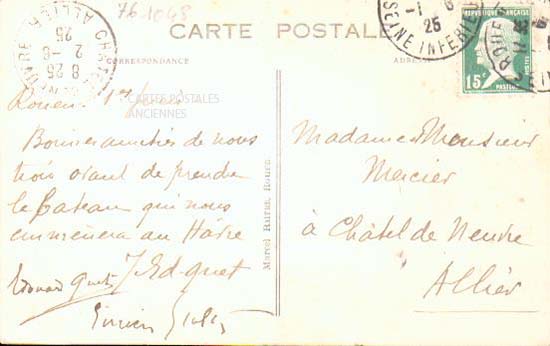 76-1048
CARTE POSTALE
CORRESPONDANCE
ADRESSE
ALLIER
8 25
2-6
25
-1 6
25
SEINE INFERIEURE
ROUEN
REPUBLIQUE FRANCAISE
15c
POSTES
PASTEUR
CARTES POSTALES
ANCIENNES
Rouen 1er
Bonnes amitiés de nous
trois avant de prendre
le bateau qui nous
emmènera au Hâvre
Edouard Guet
Lucien
Marcel
Rouen
Madame & Monsieur
Mercier
à Châtel de Neuvre
Allier